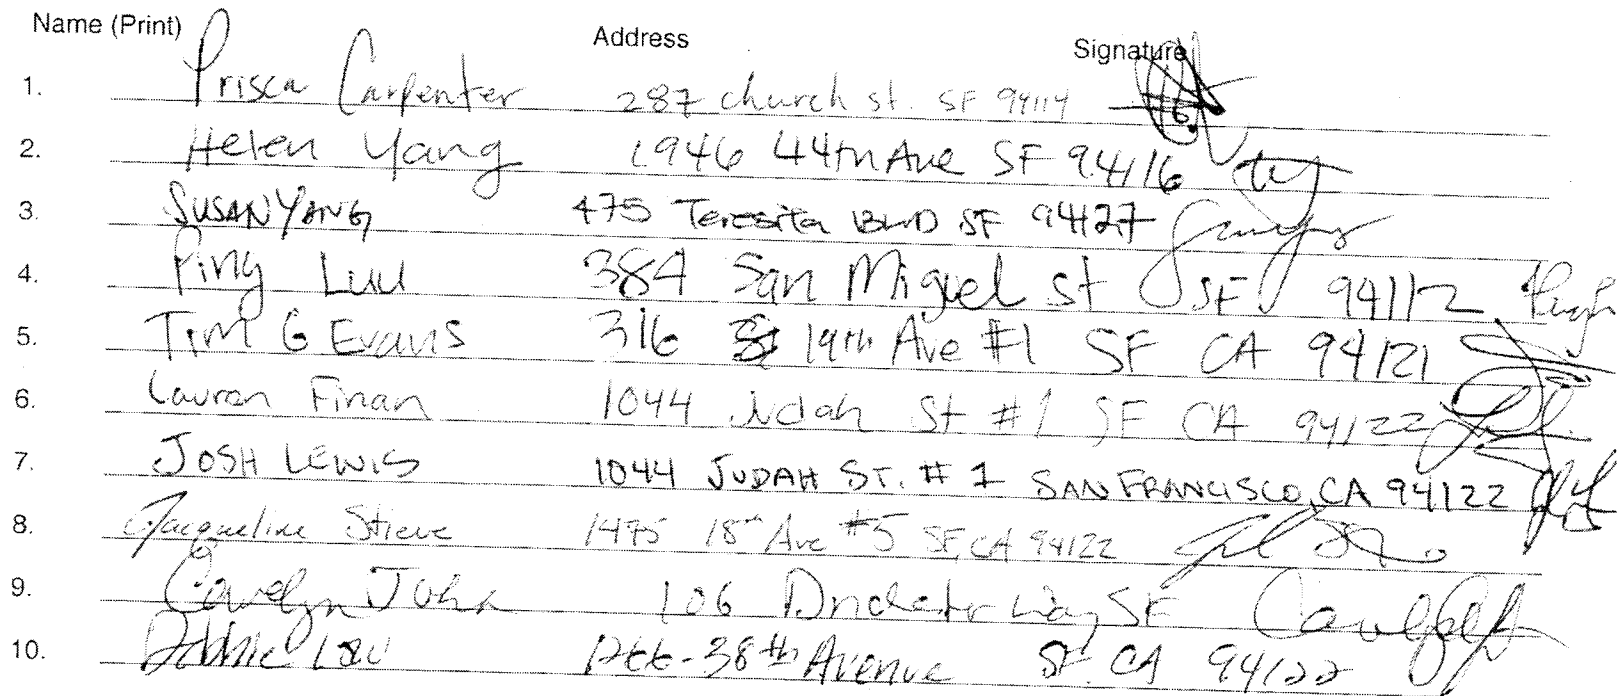 Name (Print) Address Signature
1. Prisca Carpenter 287 church st. SF 94114
2. Helen Yang 1946 44th Ave SF 94116
3. SUSAN YANG 475 Teresita BLVD SF 94127
4. Ping Luu 384 San Miguel st SF 94112
5. Tim G Evans 316 19th Ave #1 SF CA 94121
6. Lauren Finan 1044 Judah St #1 SF CA 94122
7. JOSH LEWIS 1044 JUDAH ST. # 1 SAN FRANCISCO, CA 94122
8. Jacqueline Stieve 1475 18th Ave #5 SF, CA 94122
9. Carolyn 106 Way SF
10. 38th Avenue SF. CA 94122